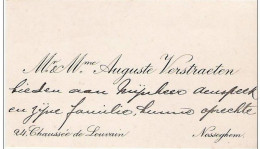 Mr & Mme Auguste Verstraeten
bieden aan Mijnheer
en zijne familie, hunne oprechte
24, Chaussée de Louvain Nosseghem